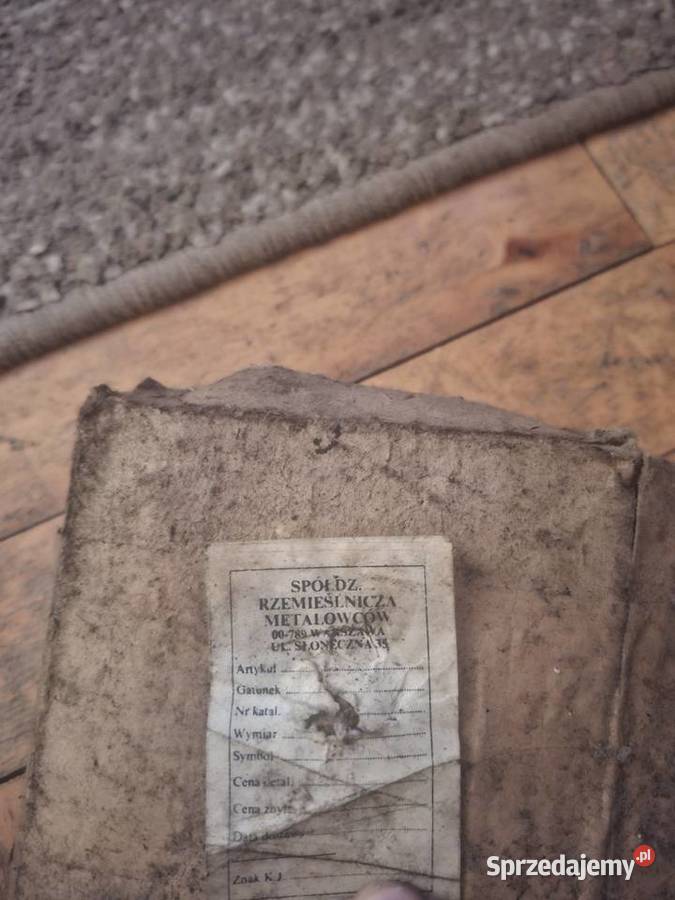 SPÓŁDZ.
RZEMIEŚLNICZA
METALOWCÓW
00-789 WARSZAWA
UL. SŁONECZNA 35
Artykuł
Gatunek
Nr katal.
Wymiar
Symbol
Cena detal.
Cena zbytu
Data
Znak K.J.
Sprzedajemy.pl